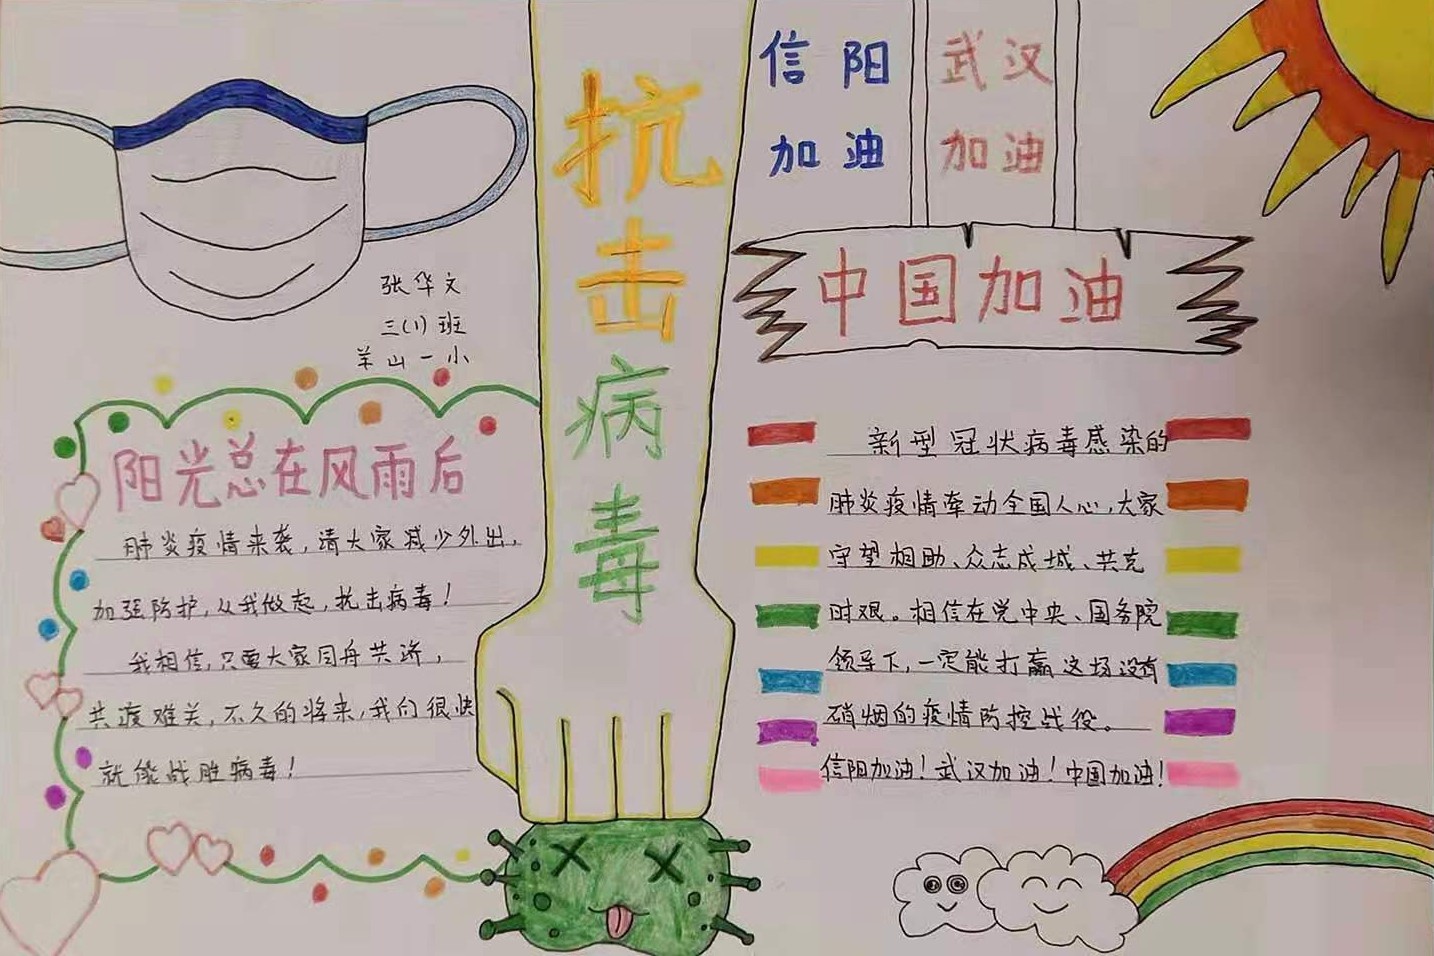 张华文
三(1)班
羊山一小
阳光总在风雨后
肺炎疫情来袭，请大家减少外出，
加强防护，从我做起，抗击病毒！
我相信，只要大家同舟共济，
共渡难关，不久的将来，我们很快
就能战胜病毒！
抗
击
病
毒
信阳
加油
武汉
加油
中国加油
新型冠状病毒感染的
肺炎疫情牵动全国人心，大家
守望相助、众志成城、共克
时艰。相信在党中央、国务院
领导下，一定能打赢这场没有
硝烟的疫情防控战役。
信阳加油！武汉加油！中国加油！